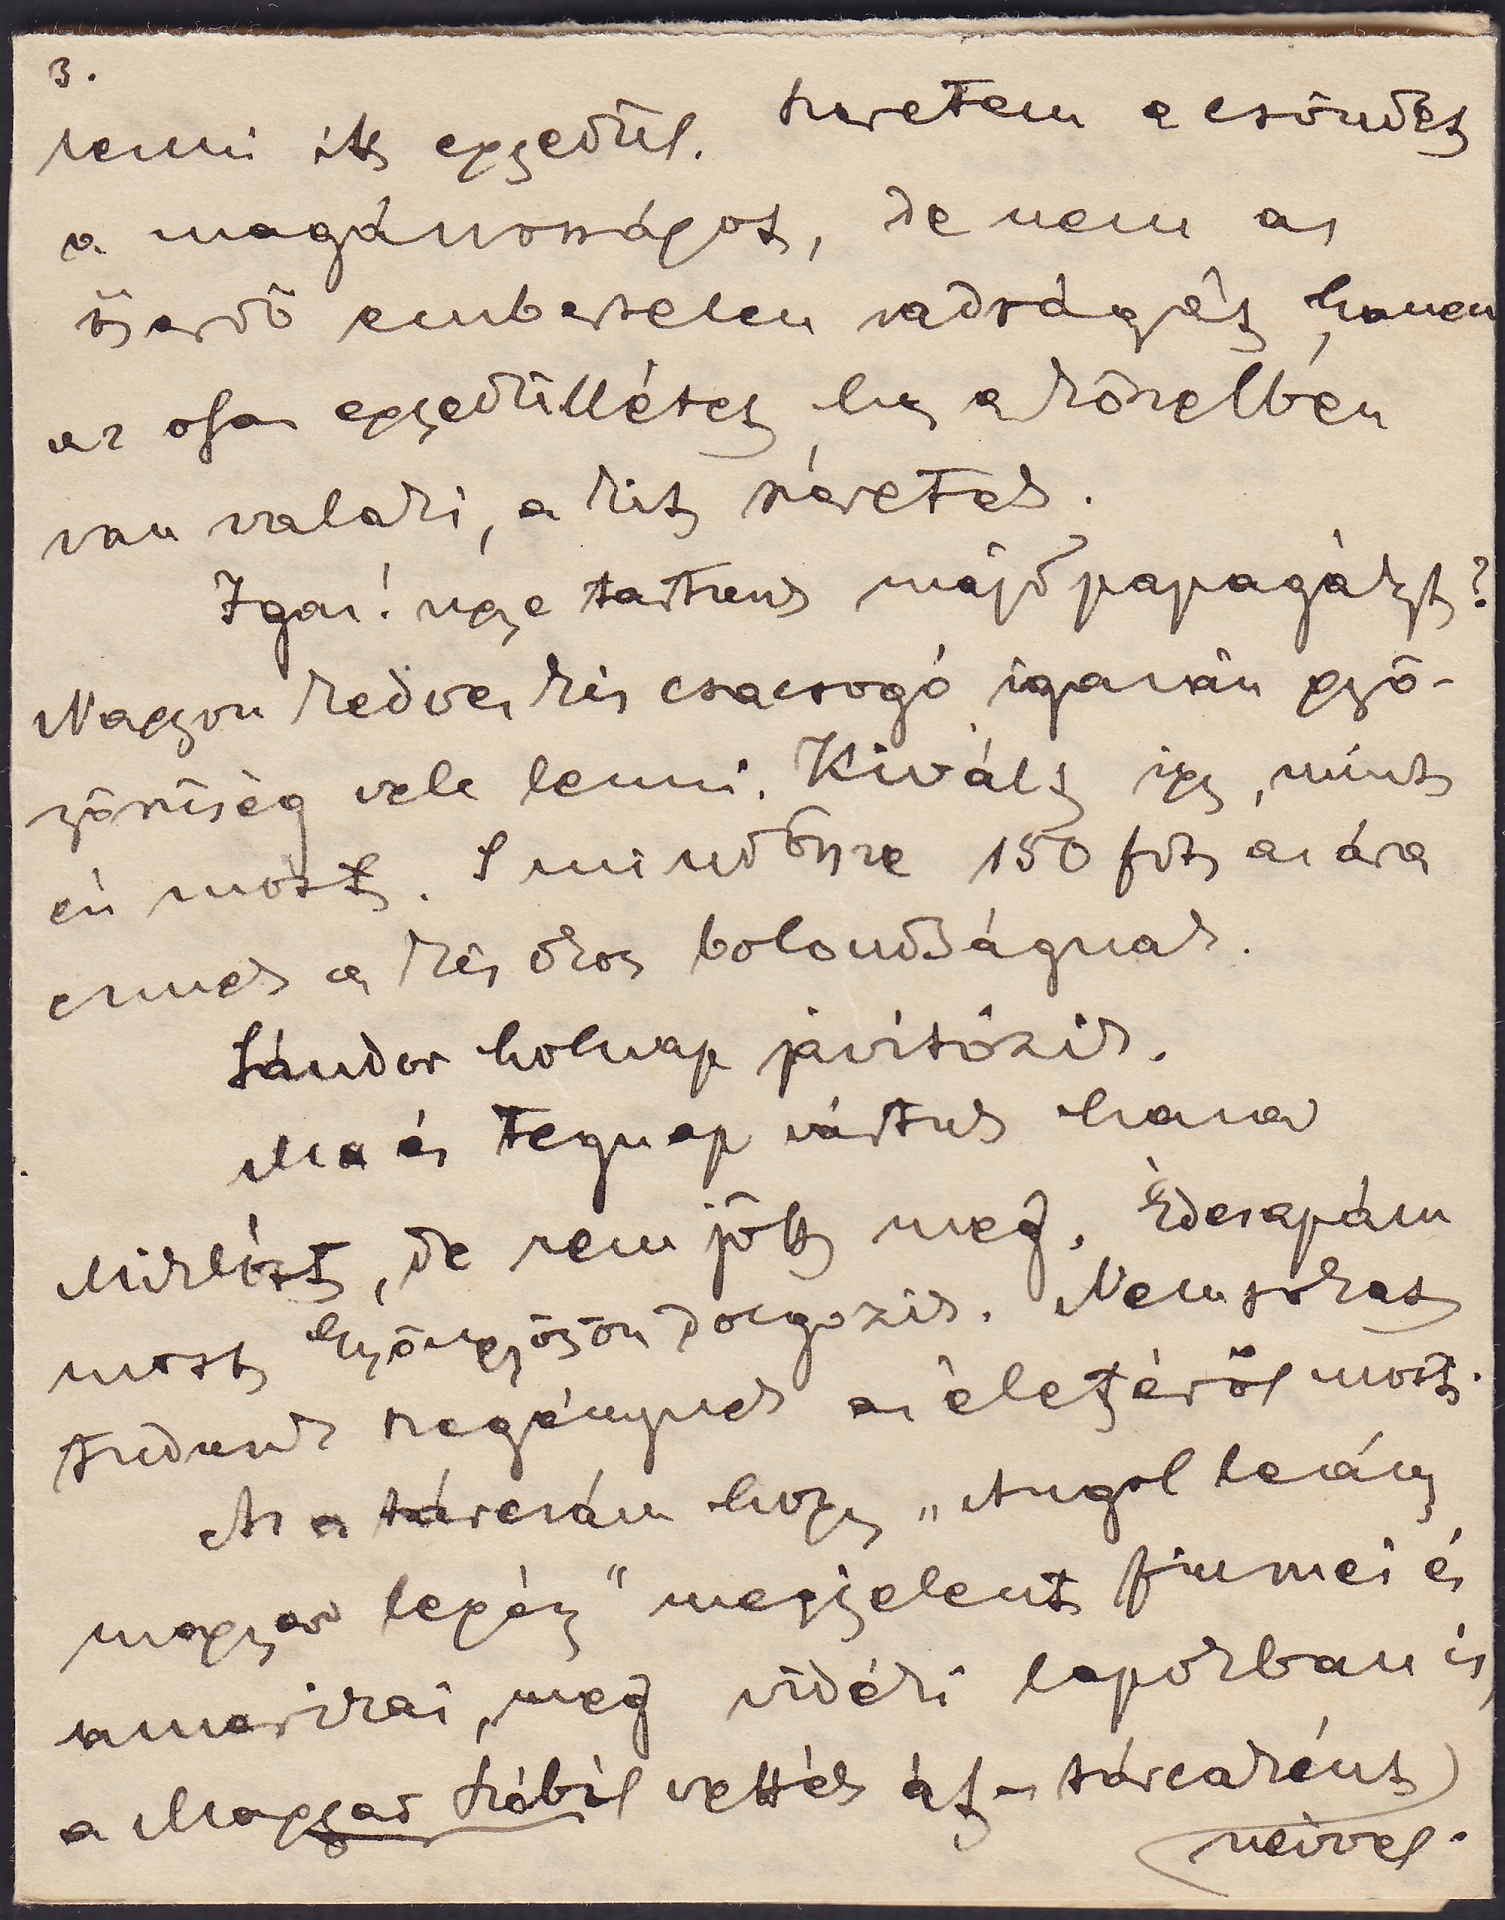 3.
lenni itt egyedül. Szeretem a csöndet
a magánosságot, de nem az
őserdő embertelen vadságát, hanem
az olyan egyedüllétet, hogy a közelben
van valaki, a kit szeretek.
Igaz! ugye tartunk majd papagályt?
Nagyon kedves kis csacsogó, igazán gyö-
nyörüség vele lenni. Kivált igy, mint
én most. S mindössze 150 frt az ára
ennek a kis okos bolondságnak.
Sándor holnap javítózik.
Ma és tegnap vártuk haza
Miklóst, de nem jött meg. Édesapám
most Gyöngyösön dolgozik. Nem sokat
tudunk szegénynek az életéről most.
Az a tárczám hogy „Angol leány
magyar legény" megjelent fiumei és
amerikai, meg vidéki lapokban is,
a Magyar Szóból vették át a tárcaként
névvel.